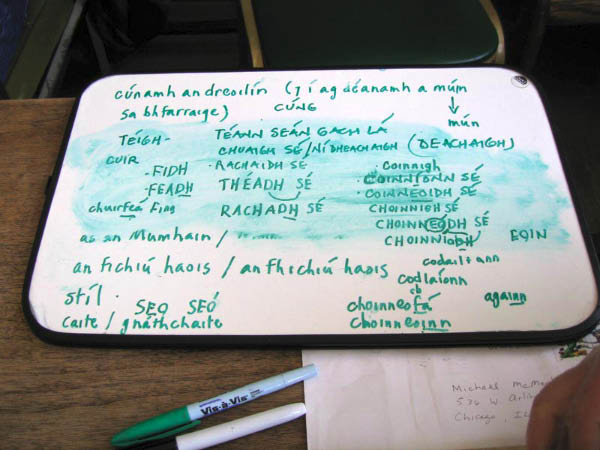 cúnamh an dreoilín (⁊ í ag déanamh a múin
sa bhfarraige)
CÚNG
mún
TÉIGH- TÉANN SEÁN GACH LÁ
CHUAIGH SÉ/NÍ DHEACHAIGH (DEACHAIGH)
CUIR
-FIDH RACHAIDH SÉ
-FEADH THÉADH SÉ
chuirfeá RACHADH SÉ
Coinnigh
COINNÍONN SÉ
COINNEOIDH SÉ
CHOINNIGH SÉ
CHOINNEODH SÉ
CHOINNÍODH
EOIN
as an Mumhain /
an fichiú haois / an fhichiú haois
codail + ann
codlaíonn
stíl.
SEO SEÓ
caite / gnáthchaite
choinneofá
choinneoinn
againn
Vis-à-Vis
Michael
Chicago, IL